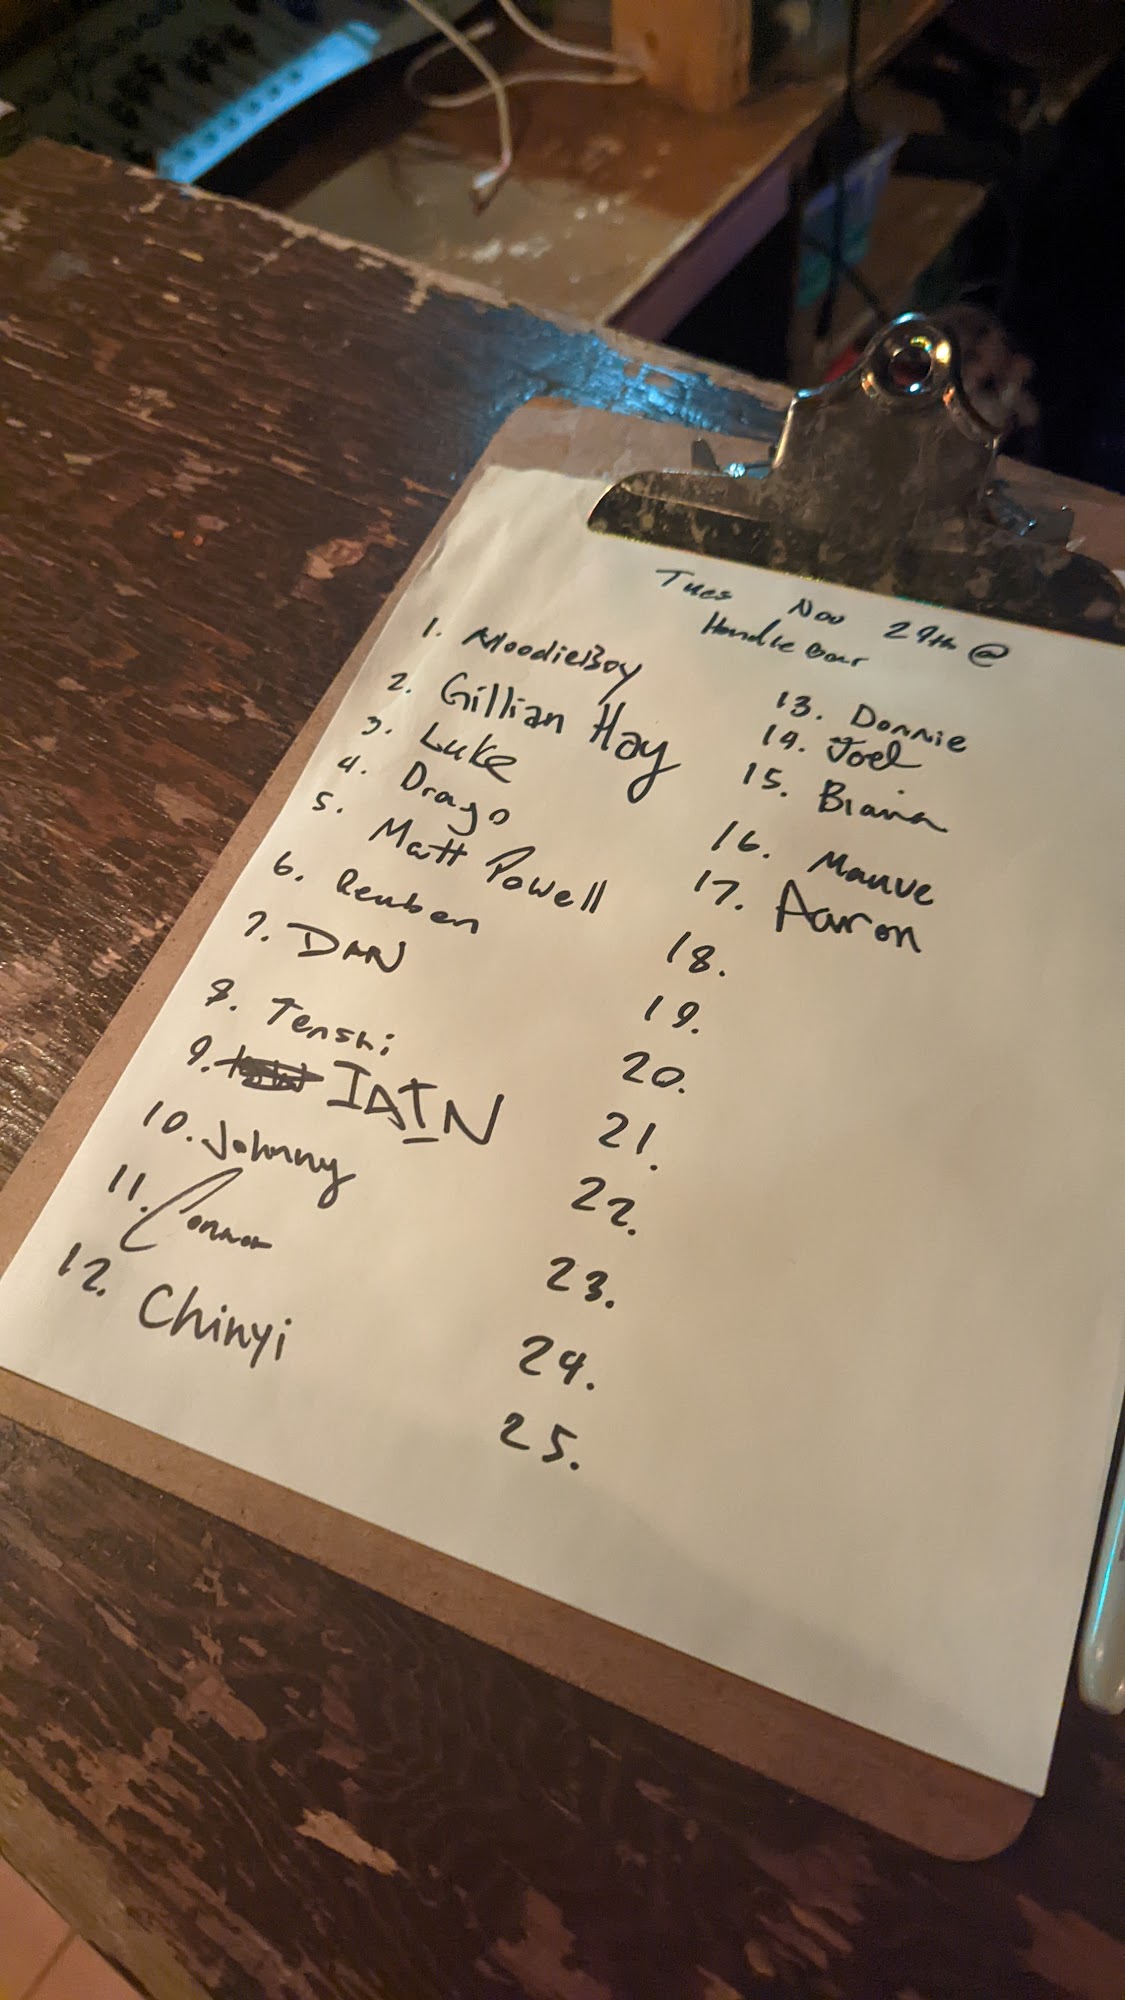 Tues Nov 29th @
Handle Bar
1. MoodieBoy
2. Gillian Hay
3. Luke
4. Drago
5. Matt Powell
6. Reuben
7. DAN
8. Tenshi
9. IAIN
10. Johnny
11. Connor
12. Chinyi
13. Donnie
14. Joel
15. Briana
16. Mauve
17. Aaron
18.
19.
20.
21.
22.
23.
24.
25.